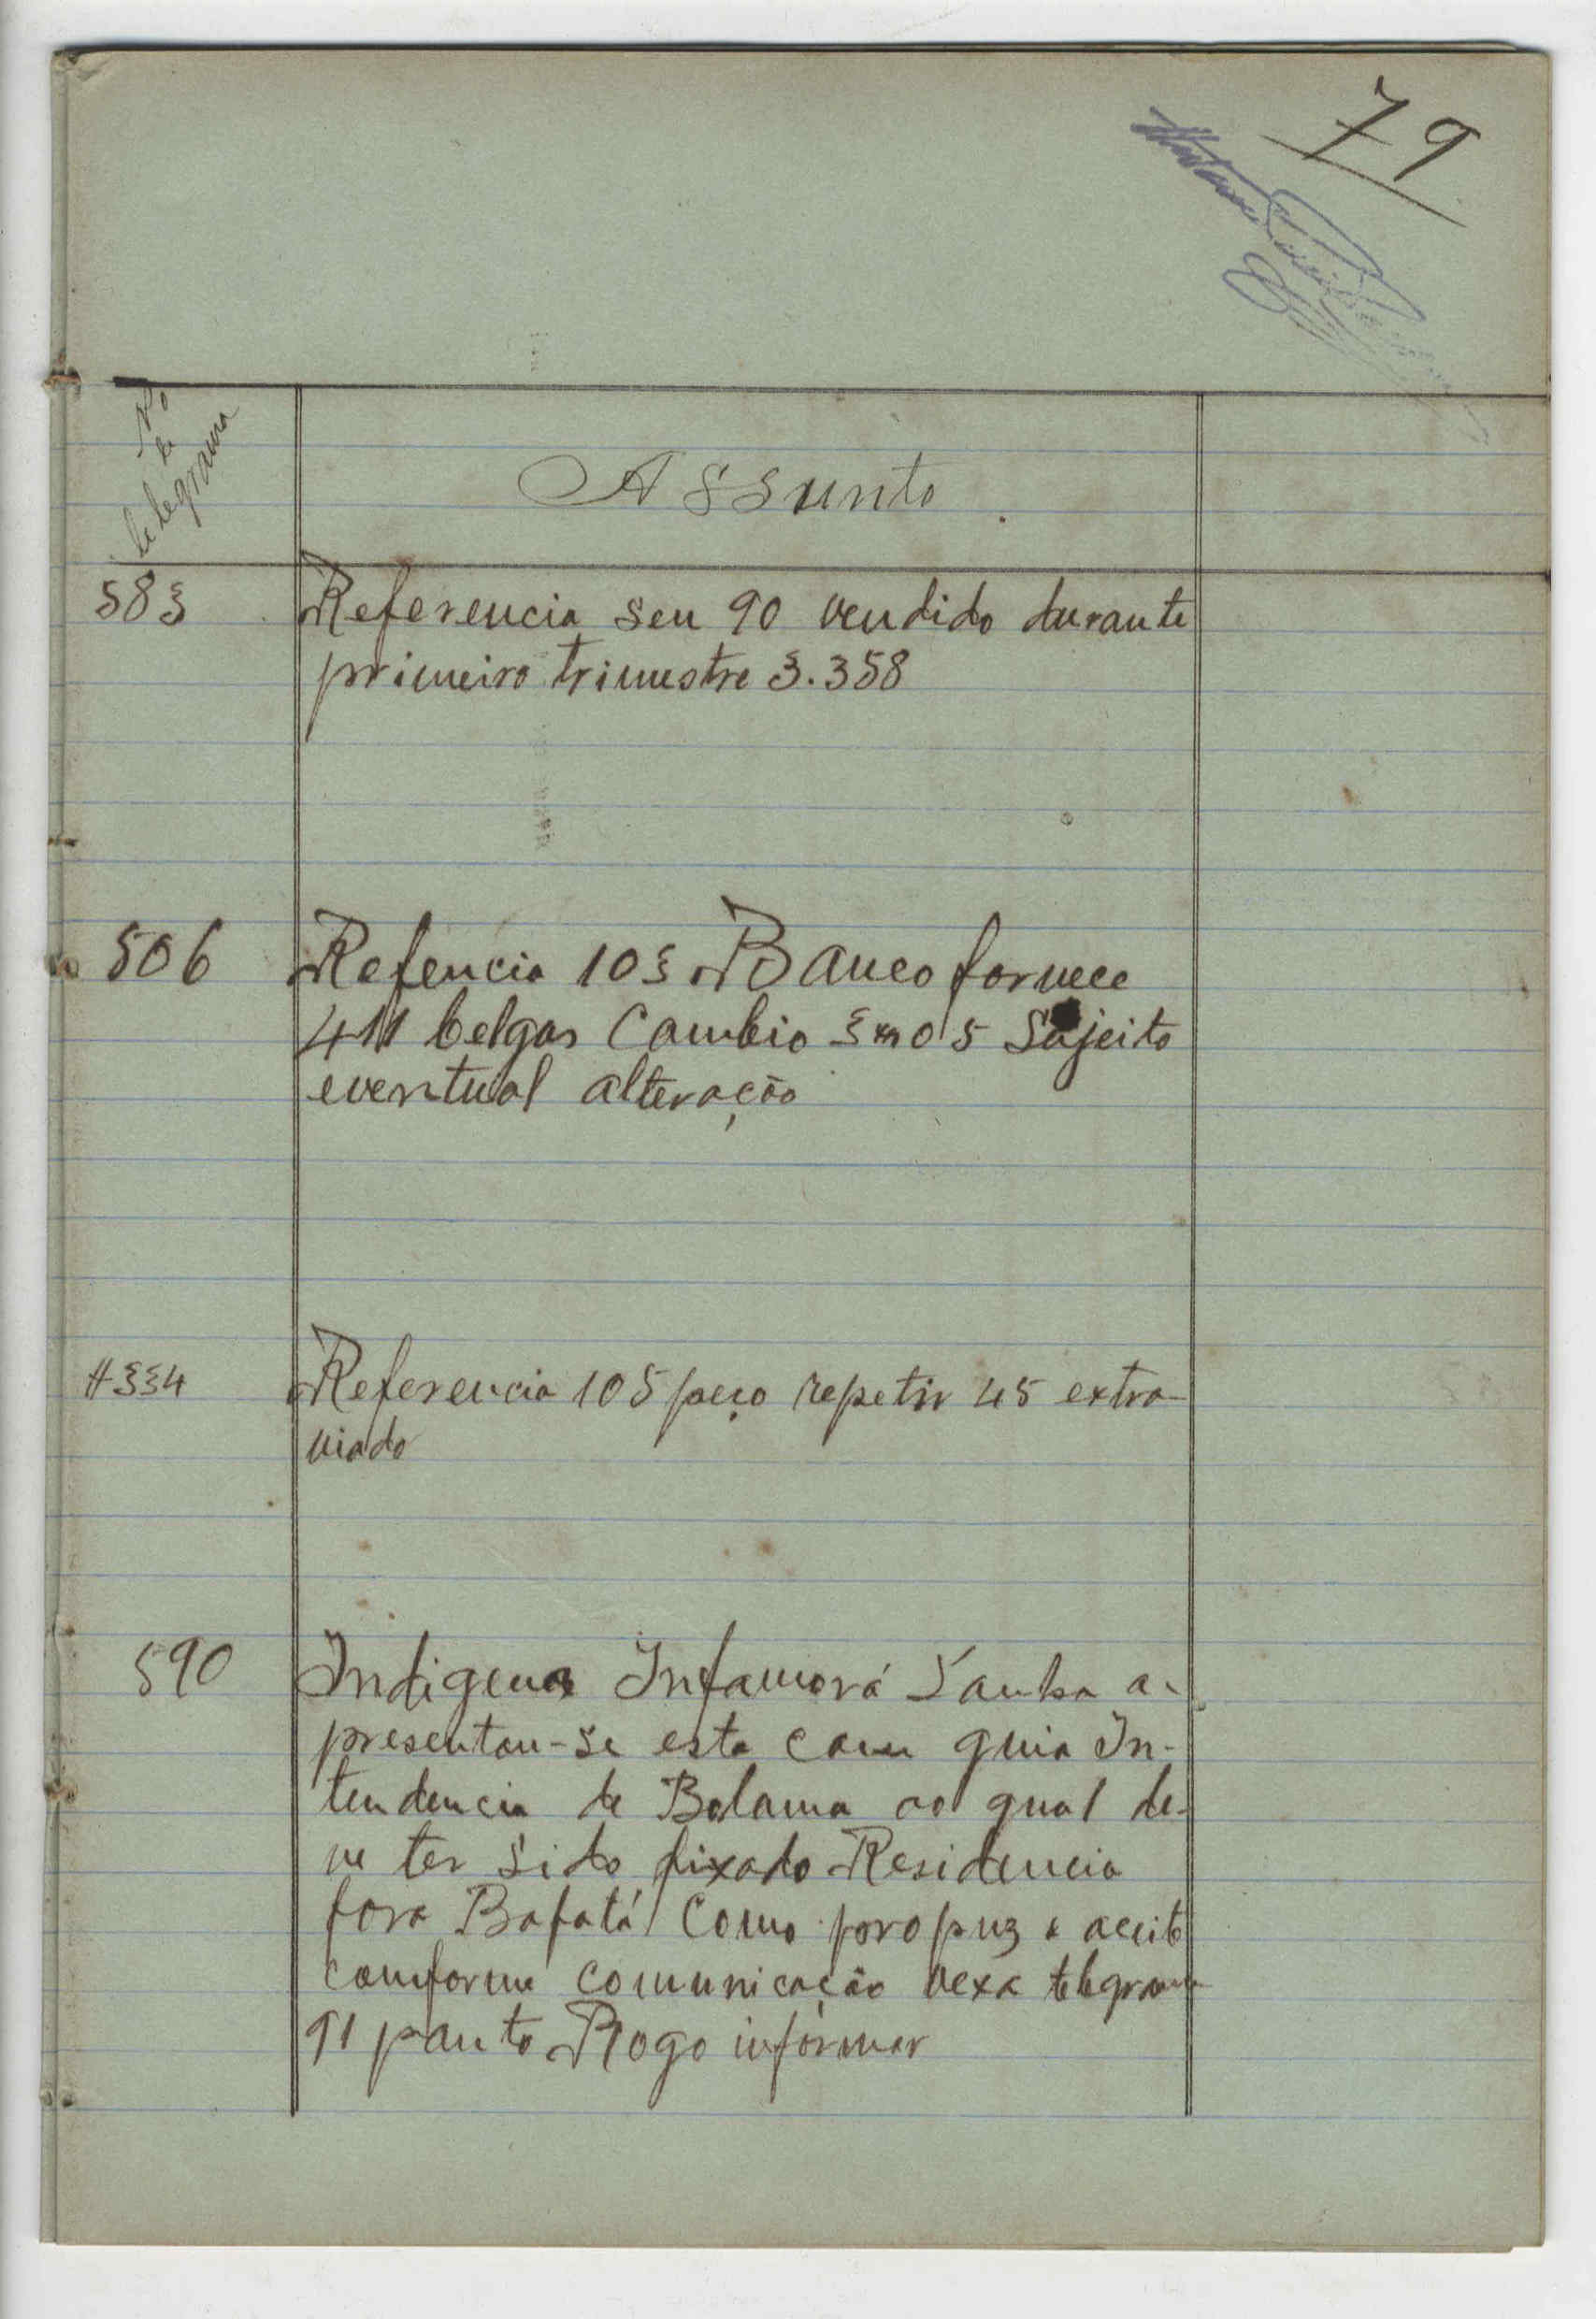 79
No
de
telegrama
Assunto
583
Referencia seu 90 vendido durante
primeiro trimestre 3.358
506
Refencia 103 Banco fornece
411 belgas Cambio 3 05 Sujeito
eventual alteração
334
Referencia 105 peço repetir 45 extra-
viado
590
Indigena Infamorá Sanha a-
presentou-se esta com guia In-
tendencia de Bolama ao qual de-
ve ter sido fixado Residencia
fora Bafatá como propuz e aceite
comforme comunicação vexa telegrama
91 panto Rogo informar